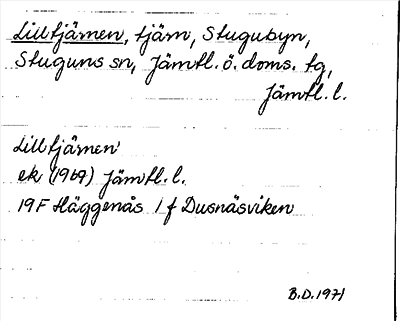 Lilltjärnen, tjärn, Stugubyn,
Stuguns sn, Jämtl. ö. doms. tg,
Jämtl. l.
Lilltjärnen
ek (1969) Jämtl. l.
19F Häggenås 1f Dusnäsviken
B.D. 1971